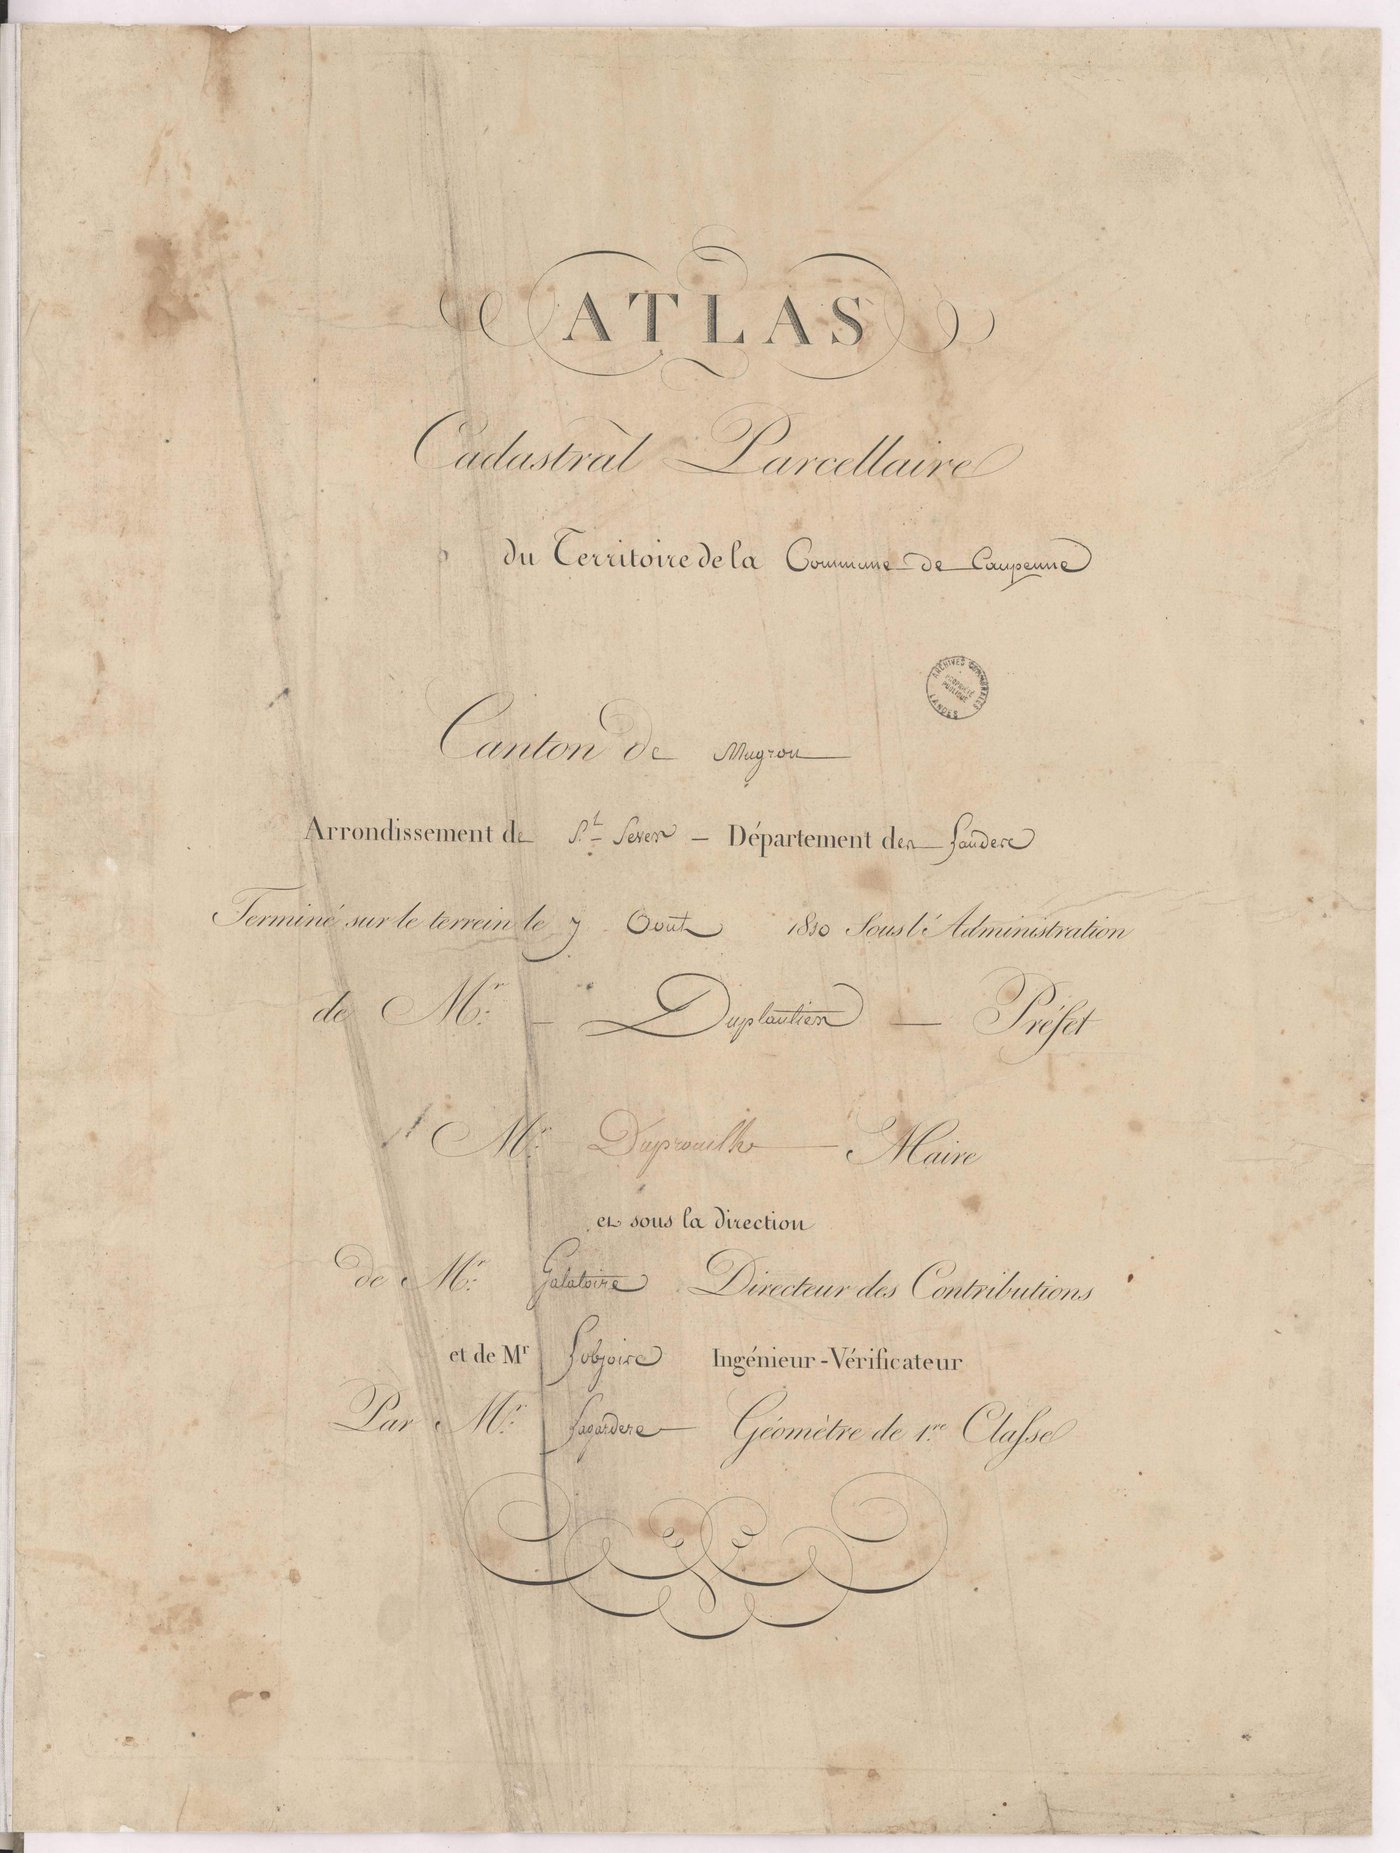 ATLAS
Cadastral Parcellaire
du Territoire de la Commune de Caupenne
ARCHIVES COMMUNALES
PROPRIÉTÉ
PUBLIQUE
LANDES
Canton de Mugron
Arrondissement de St. Sever – Département des Landes
Terminé sur le terrein le 7 Aout 1810 Sous l'Administration
de Mr. – Duplantier – Préfet
Mr. Duprouilh Maire
et sous la direction
de Mr. Galatoire Directeur des Contributions
et de Mr Lobjoire Ingénieur-Vérificateur
Par Mr. Lagardere Géomètre de 1re. Classe